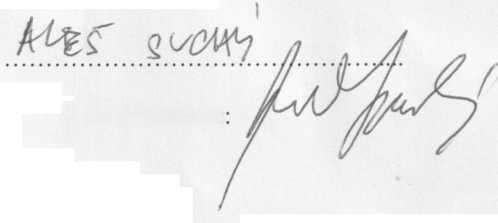 ALEŠ SUCHÝ
: